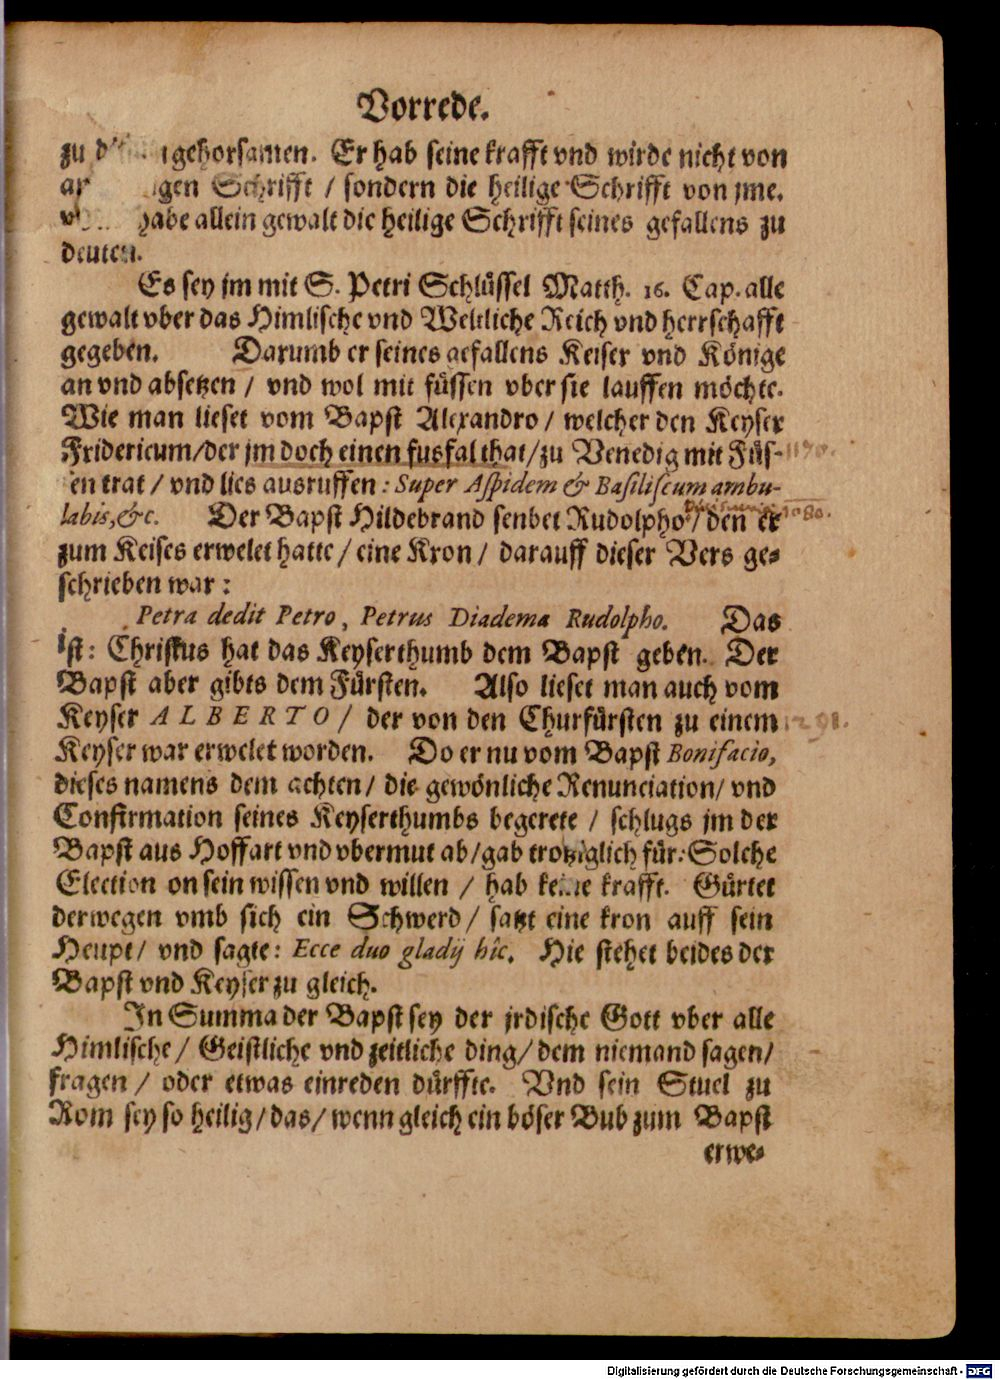 Vorrede.
zu gehorsamen. Er hab seine krafft vnd wirde nicht von
Schrifft / sondern die heilige Schrifft von jme.
habe allein gewalt die heilige Schrifft seines gefallens zu
deuten.
Es sey jm mit S. Petri Schlüssel Matth. 16. Cap. alle
gewalt vber das Himlische vnd Weltliche Reich vnd herrschafft
gegeben. Darumb er seines gefallens Keiser vnd Könige
an vnd absetzen / vnd wol mit füssen vber sie lauffen möchte.
Wie man lieset vom Bapst Alexandro / welcher den Keyser
Fridericum/der jm doch einen fusfal that/zu Venedig mit Füs-
sen trat / vnd lies ausruffen: Super Aspidem & Basiliscum ambu-
labis,&c. Der Bapst Hildebrand senbet Rudolpho / den er 1080.
zum Keises erwelet hatte / eine Kron / darauff dieser Vers ge-
schrieben war:
Petra dedit Petro, Petrus Diadema Rudolpho. Das
ist: Christus hat das Keyserthumb dem Bapst geben. Der
Bapst aber gibts dem Fürsten. Also lieset man auch vom
Keyser ALBERTO / der von den Churfürsten zu einem
Keyser war erwelet worden. Do er nu vom Bapst Bonifacio,
dieses namens dem achten / die gewönliche Renunciation/ vnd
Confirmation seines Keyserthumbs begerete / schlugs jm der
Bapst aus Hoffart vnd vbermut ab/gab trotziglich für: Solche
Election on sein wissen vnd willen / hab keine krafft. Gürtet
derwegen vmb sich ein Schwerd / satzt eine kron auff sein
Heupt / vnd sagte: Ecce duo gladij hîc. Hie stehet beides der
Bapst vnd Keyser zu gleich.
In Summa der Bapst sey der jrdische Gott vber alle
Himlische / Geistliche vnd zeitliche ding/ dem niemand sagen/
fragen / oder etwas einreden dürffte. Vnd sein Stuel zu
Rom sey so heilig/das/ wenn gleich ein böser Bub zum Bapst
erwe-
Digitalisierung gefördert durch die Deutsche Forschungsgemeinschaft - DFG